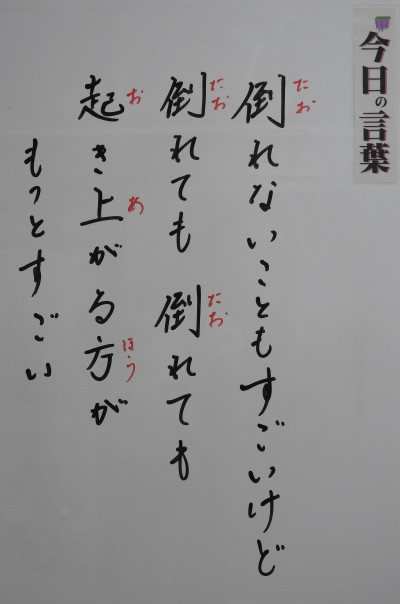 今日の言葉
倒れないこともすごいけど
倒れても 倒れても
起き上がる方が
もっとすごい
たお
たお
たお
お
あ
ほう